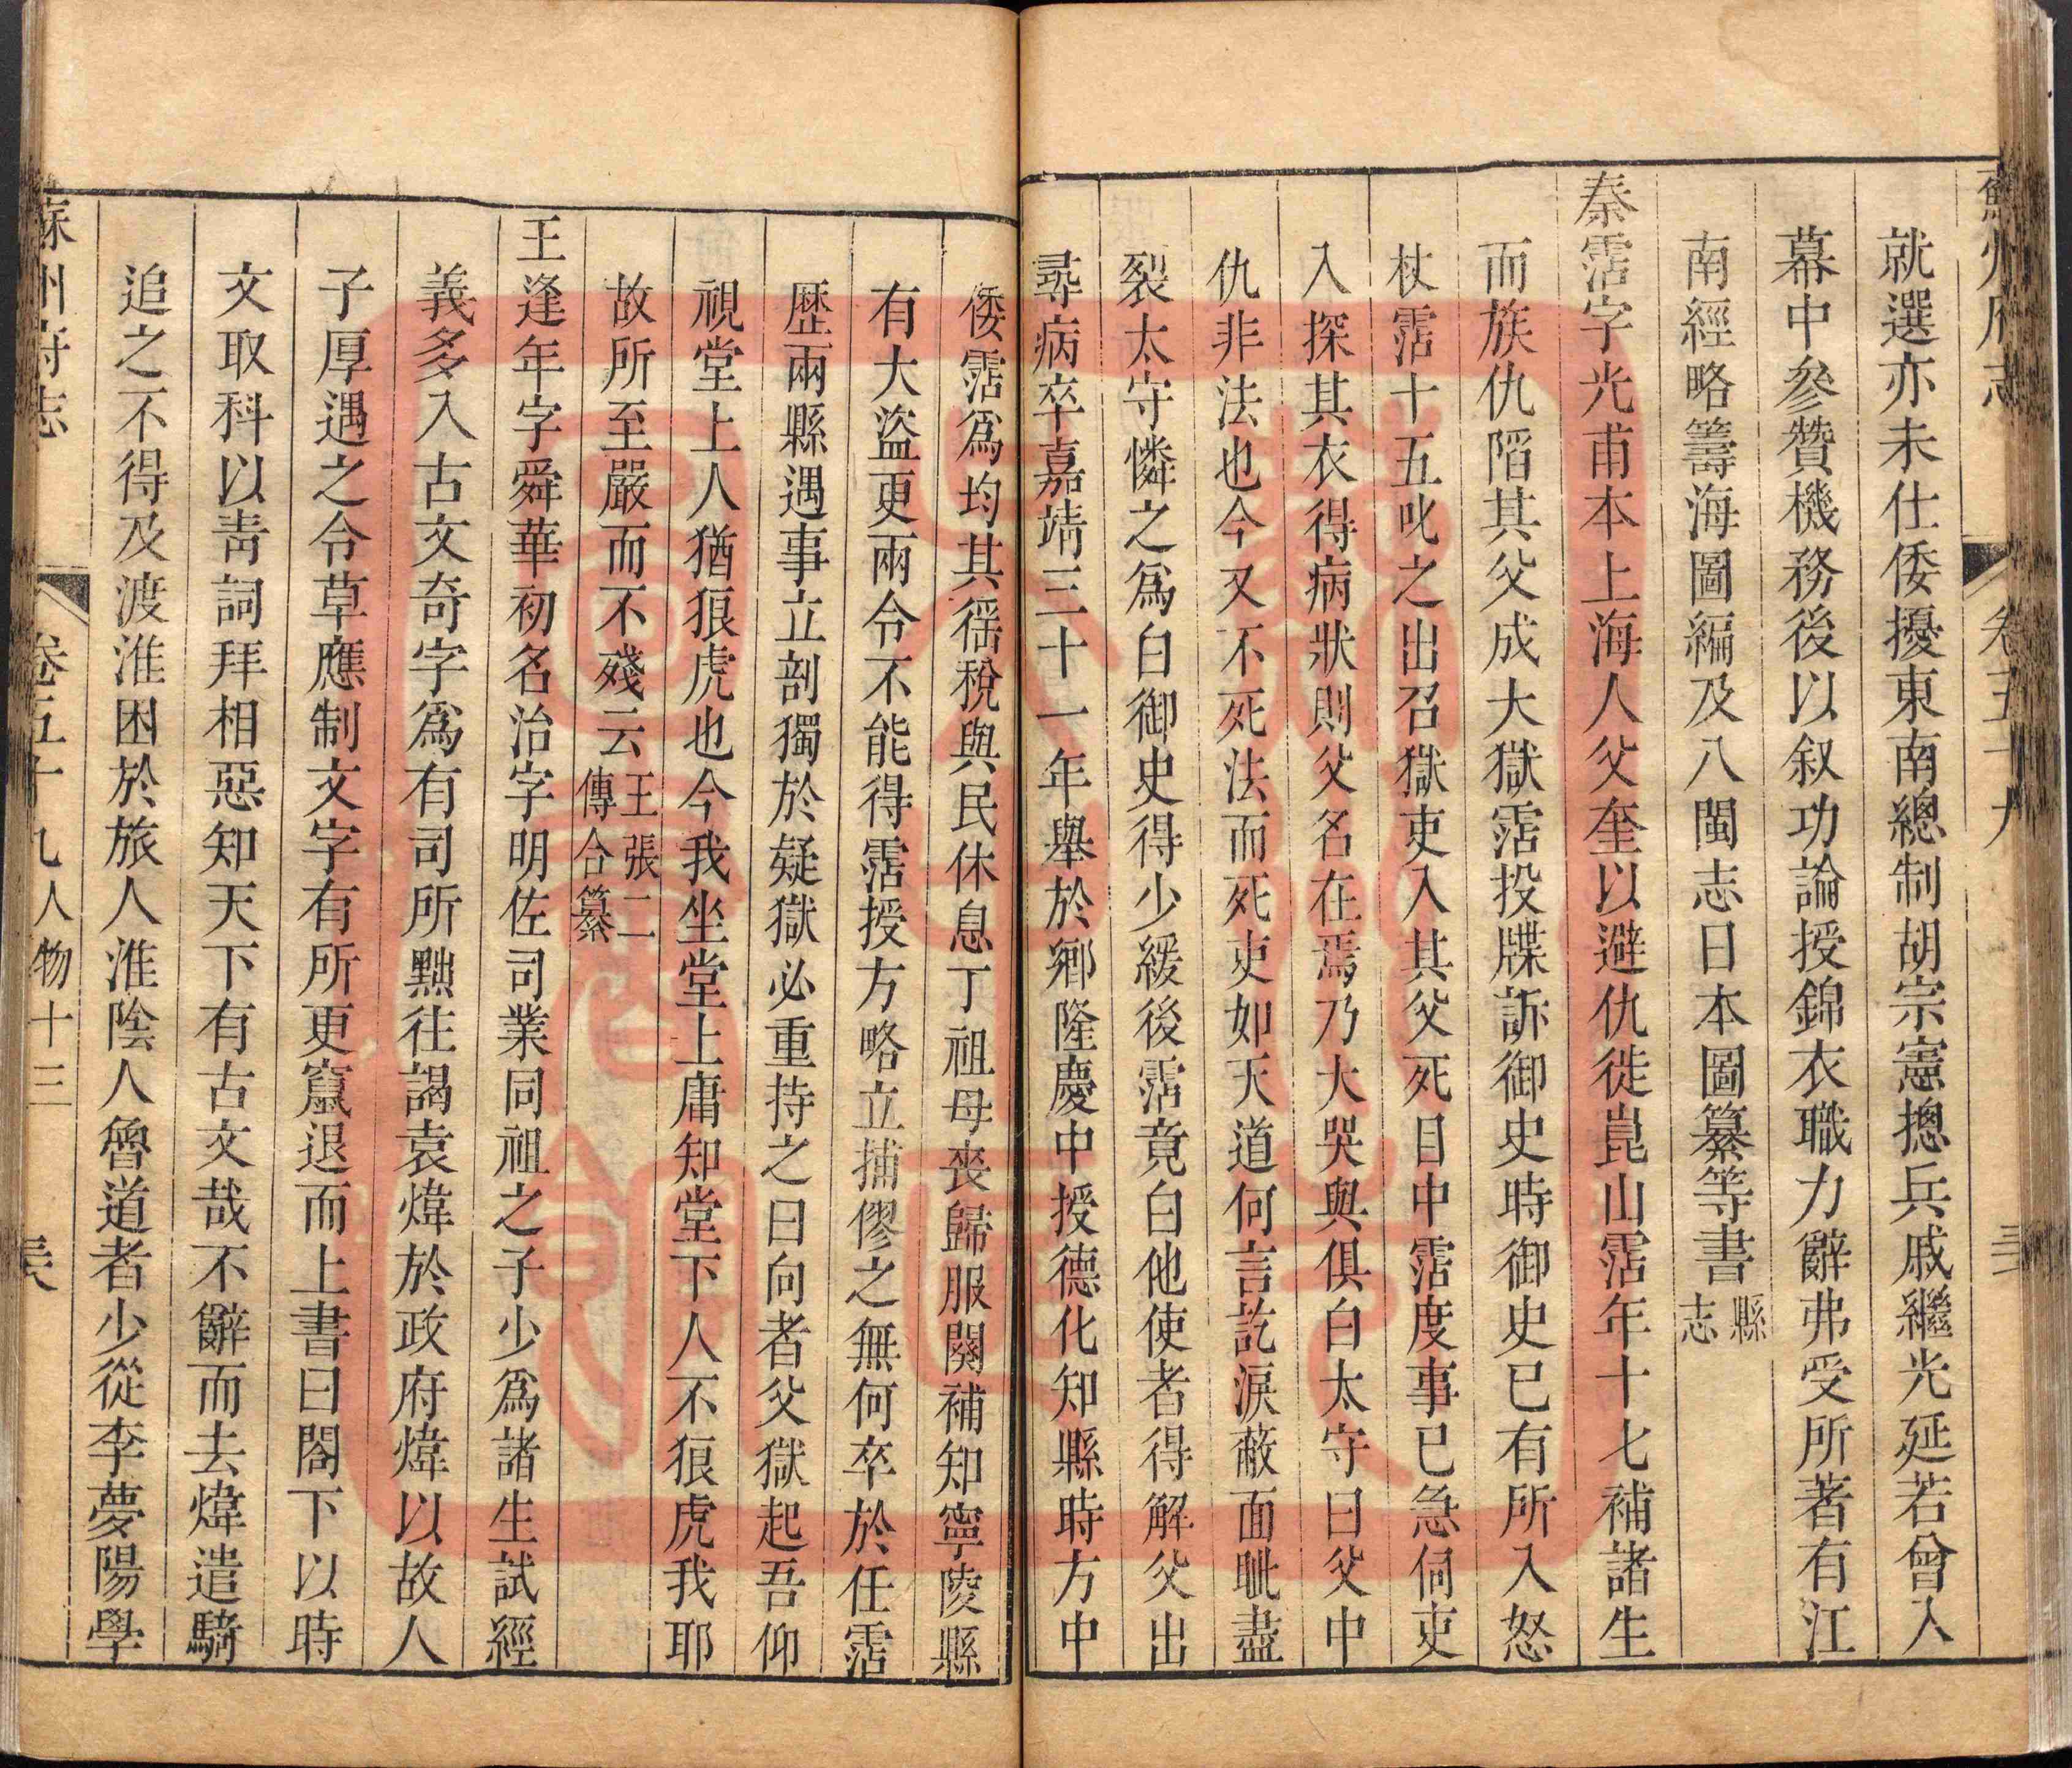 蘇州府志 卷五十九
就選亦未仕倭擾東南總制胡宗憲摠兵戚繼光延若曾入
幕中參贊機務後以叙功論授錦衣職力辭弗受所著有江
南經略籌海圖編及八閩志日本圖纂等書縣志
秦霑字光甫本上海人父奎以避仇徙崑山霑年十七補諸生
而族仇陷其父成大獄霑投牒訴御史時御史已有所入怒
杖霑十五叱之出召獄吏入其父死日中霑度事已急伺吏
入探其衣得病狀則父名在焉乃大哭與俱白太守曰父中
仇非法也今又不死法而死吏如天道何言訖淚蔽面眦盡
裂太守憐之爲白御史得少緩後霑竟白他使者得解父出
尋病卒嘉靖三十一年舉於鄉隆慶中授德化知縣時方中
倭霑爲均其徭稅與民休息丁祖母喪歸服闋補知寧陵縣
有大盜更兩令不能得霑授方略立捕僇之無何卒於任霑
歷兩縣遇事立剖獨於疑獄必重持之曰向者父獄起吾仰
視堂上人猶狼虎也今我坐堂上庸知堂下人不狼虎我耶
故所至嚴而不殘云王張二傳合纂
王逢年字舜華初名治字明佐司業同祖之子少爲諸生試經
義多入古文奇字爲有司所黜往謁袁煒於政府煒以故人
子厚遇之令草應制文字有所更竄退而上書曰閣下以時
文取科以靑詞拜相惡知天下有古文哉不辭而去煒遣騎
追之不得及渡淮困於旅人淮陰人魯道者少從李夢陽學
蘇州府志 卷五十九 人物十三